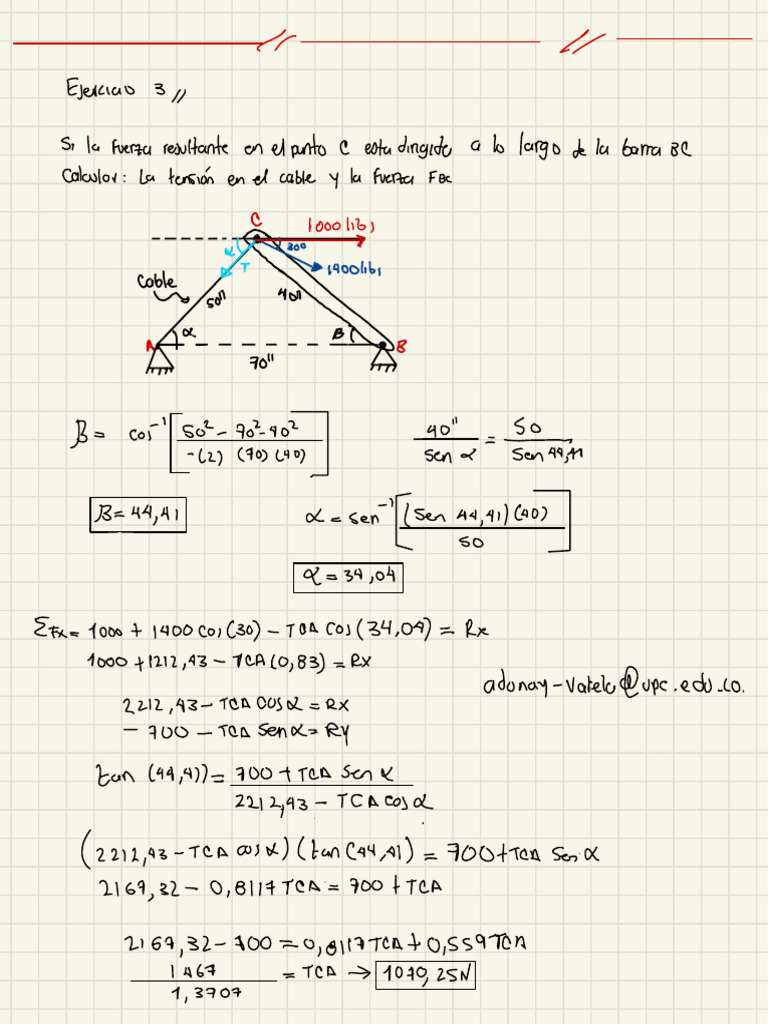 Ejercicio 3 //
Si la fuerza resultante en el punto C esta dirigida a lo largo de la barra BC
Calcular: La tensión en el cable y la fuerza FBC
C
1000 libs
30º
1400 libs
α
T
Cable
50"
40"
A
α
β
B
70"
β = cos⁻¹ [50² - 70² - 40² / -(2) (70) (40)]
40" / sen α = 50 / sen 44,41
β = 44,41
α = sen⁻¹ [(sen 44,41) (40) / 50]
α = 34,04
ΣFx = 1000 + 1400 cos(30) - TCA cos(34,04) = Rx
1000 + 1212,43 - TCA(0,83) = Rx
adonay-varela@upc.edu.co.
2212,43 - TCA cos α = Rx
- 700 - TCA sen α = Ry
tan (44,41) = 700 + TCA sen α / 2212,43 - TCA cos α
(2212,43 - TCA cos α) (tan (44,41) = 700 + TCA sen α
2167,32 - 0,8117 TCA = 700 + TCA
2167,32 - 700 = 0,8117 TCA + 0,559 TCA
1467 / 1,3707 = TCA → 1070,25N